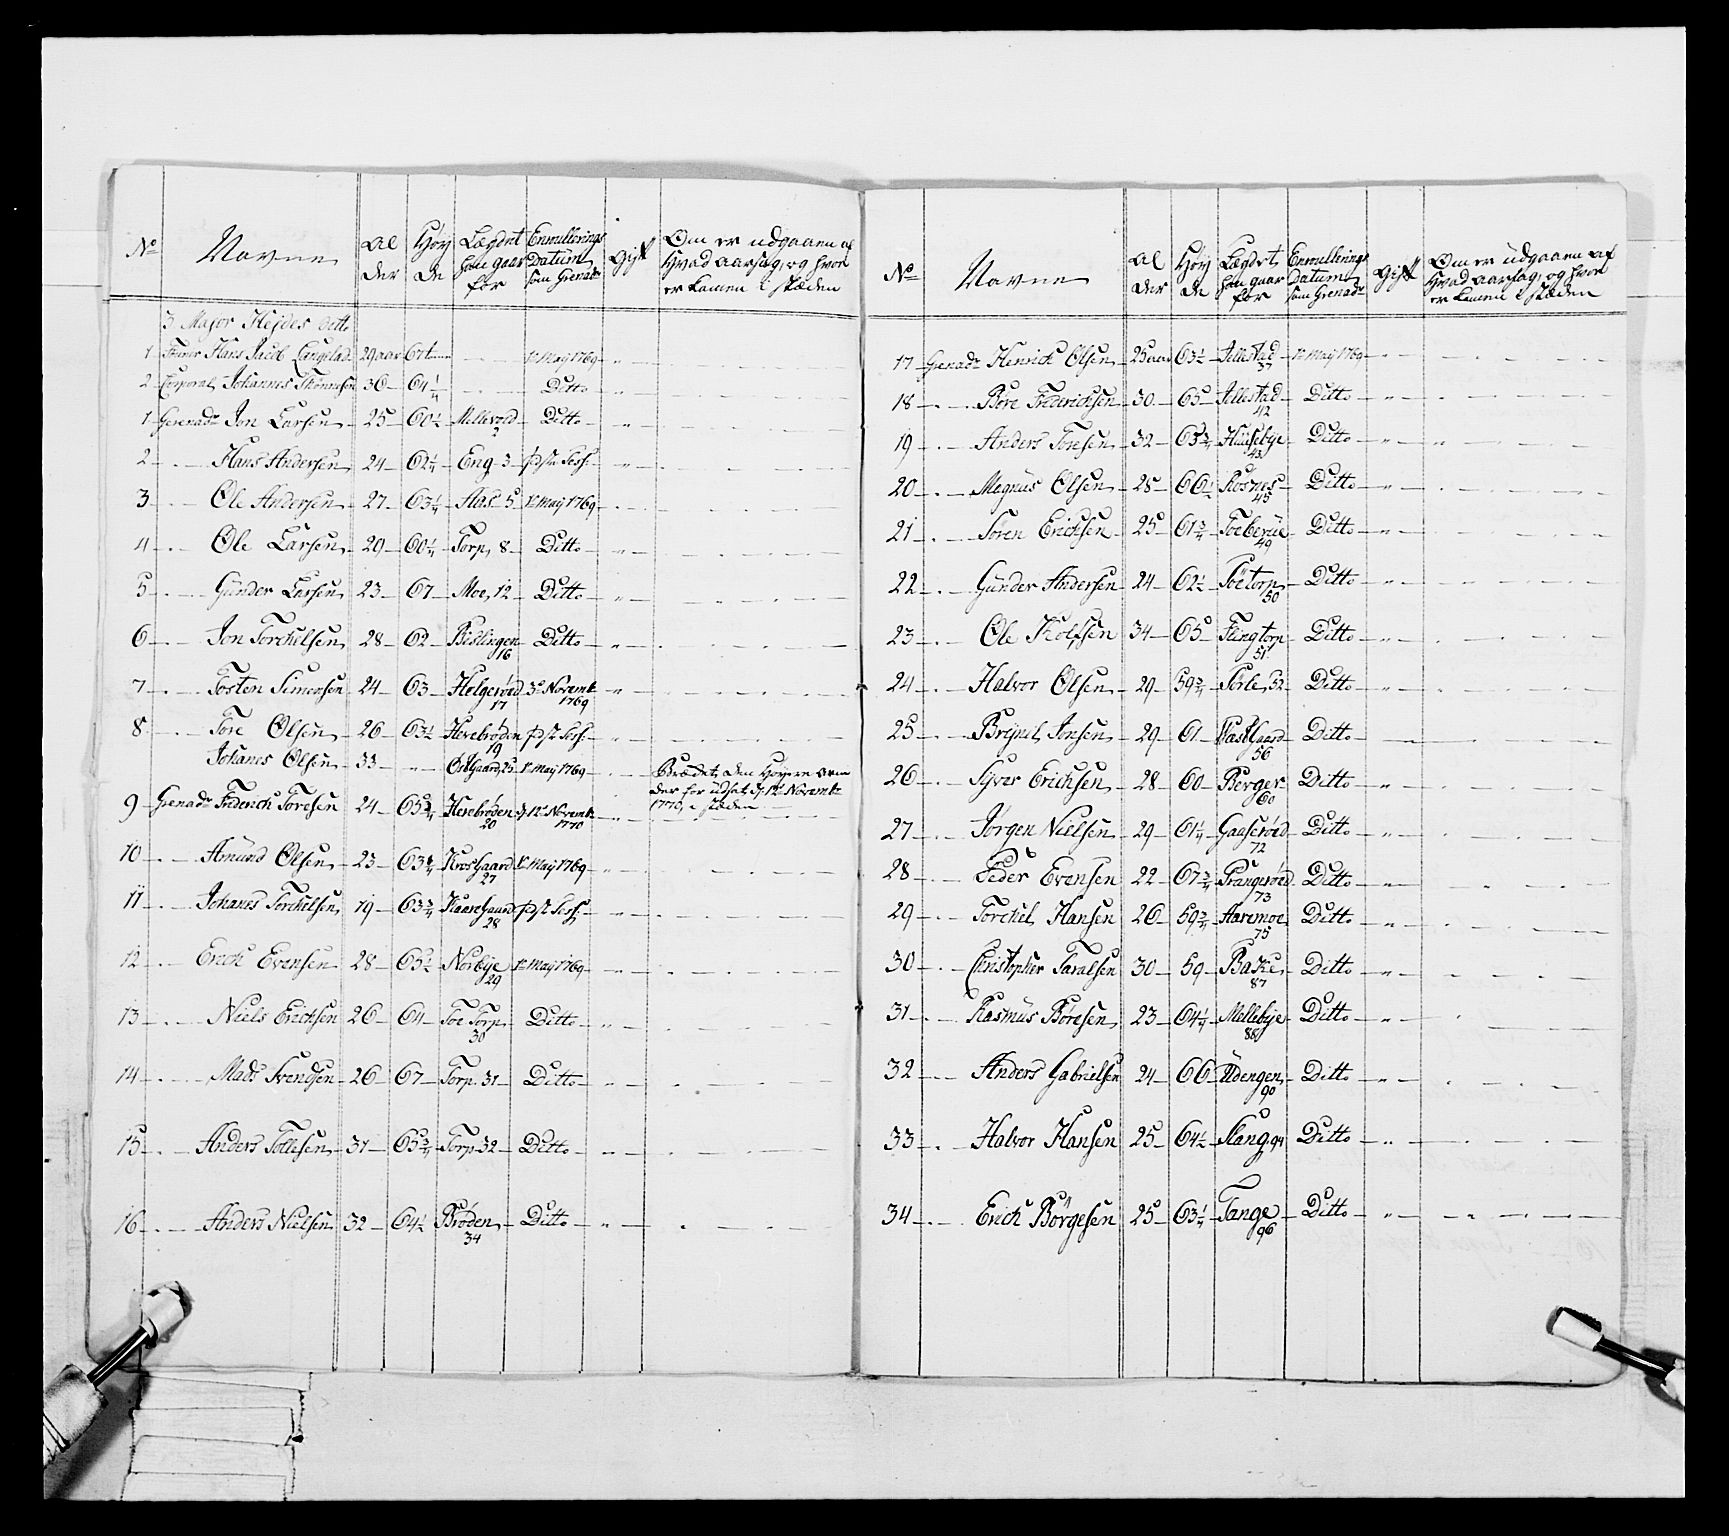 No Navne Al der Høy de Lægdet han gaar for Enrullerings Datum som Grenadr Gift Om er udgaaen af Hvad aarsag, og hvem er kommen i stæden
3 Major Hejdes Ditto
1 Hans Jacob 29 aar 67 1 May 1769
2 Corporal Johannes 36 64 1/4 Ditto
1 Gerenadr Jon Larsen 25 60 1/2 2 Ditto
2 Hans Andersen 24 62 1/4 Eng 3
3 Ole Andersen 27 63 1/4 Aas 5 1 May 1769
4 Ole Larsen 29 60 1/4 Torp 8 Ditto
5 Gunder Larsen 23 67 Moe, 12 Ditto
6 Jon Torckelsen 28 62 Bislingen 16 Ditto
7 Torsten Simensen 24 63 Helgerøed 17 3 Novembr 1769
8 Tore Olsen 26 63 1/2 Herrebrøden 19
Johanes Olsen 33 Ostgaard, 25 1 May 1769 Brædet, den Høyere
9 Grenadr Frderich Toresen 24 65 3/4 Herebrøden 20 12 Novembr 1770 der for udsat d. 12 Novembr 1770, i stæden
10 Amund Olsen 23 63 3/4 Krosgaard 27 1 May 1769
11 Johanes Torckelsen 19 63 3/4 28
12 Erich Evensen 28 65 1/2 Norbye 29 1 May 1769
13 Niels Erichsen 26 64 Toe Torp 30 Ditto
14 Mads Svendsen 26 67 Torp 31 Ditto
15 Anders Tollefsen 31 65 3/4 Torp 32 Ditto
16 Anders Nielsen 32 64 1/2 Brøden 34 Ditto
No Navne Al der Høy de Lægdet han gaar for Enrullerings Datum som Grenadr Gift Om er udgaaen af Hvad aarsag, og hvem er kommen i stæden
17 Grenadr Henrich Olsen 25 aar 63 1/2 Jellestad 37 1 May 1769
18 Bore Frederichsen 30 65 Jellestad 42 Ditto
19 Anders Toresen 32 63 3/4 Huusebye 43 Ditto
20 Megnus Olsen 28 66 1/2 Rosnes 45 Ditto
21 Søren Erichsen 25 61 3/4 49 Ditto
22 Gunder Andersen 24 62 1/2 50 Ditto
23 Ole Rolfsen 34 65 Flingtorp 51 Ditto
24 Halvor Olsen 29 59 3/4 Sørle, 52 Ditto
25 Brynil Jonsen 29 61 56 Ditto
26 Syver Erichsen 28 60 Berger 60 Ditto
27 Jørgen Nielsen 29 61 1/4 Gaaserøed 72 Ditto
28 Peder Evensen 22 67 3/4 Prangerøed 73 Ditto
29 Torckel Hansen 26 59 3/4 Haremoe 75 Ditto
30 Christopher Taralsen 30 59 Bakke 87 Ditto
31 Rasmus Børesen 23 64 1/4 Mellebye 88 Ditto
32 Anders Gabrielsen 24 66 Ødengen 90 Ditto
33 Halvor Hansen 25 64 1/2 Slang 94 Ditto
34 Erich Børgesen 25 63 1/4 Tange 96 Ditto